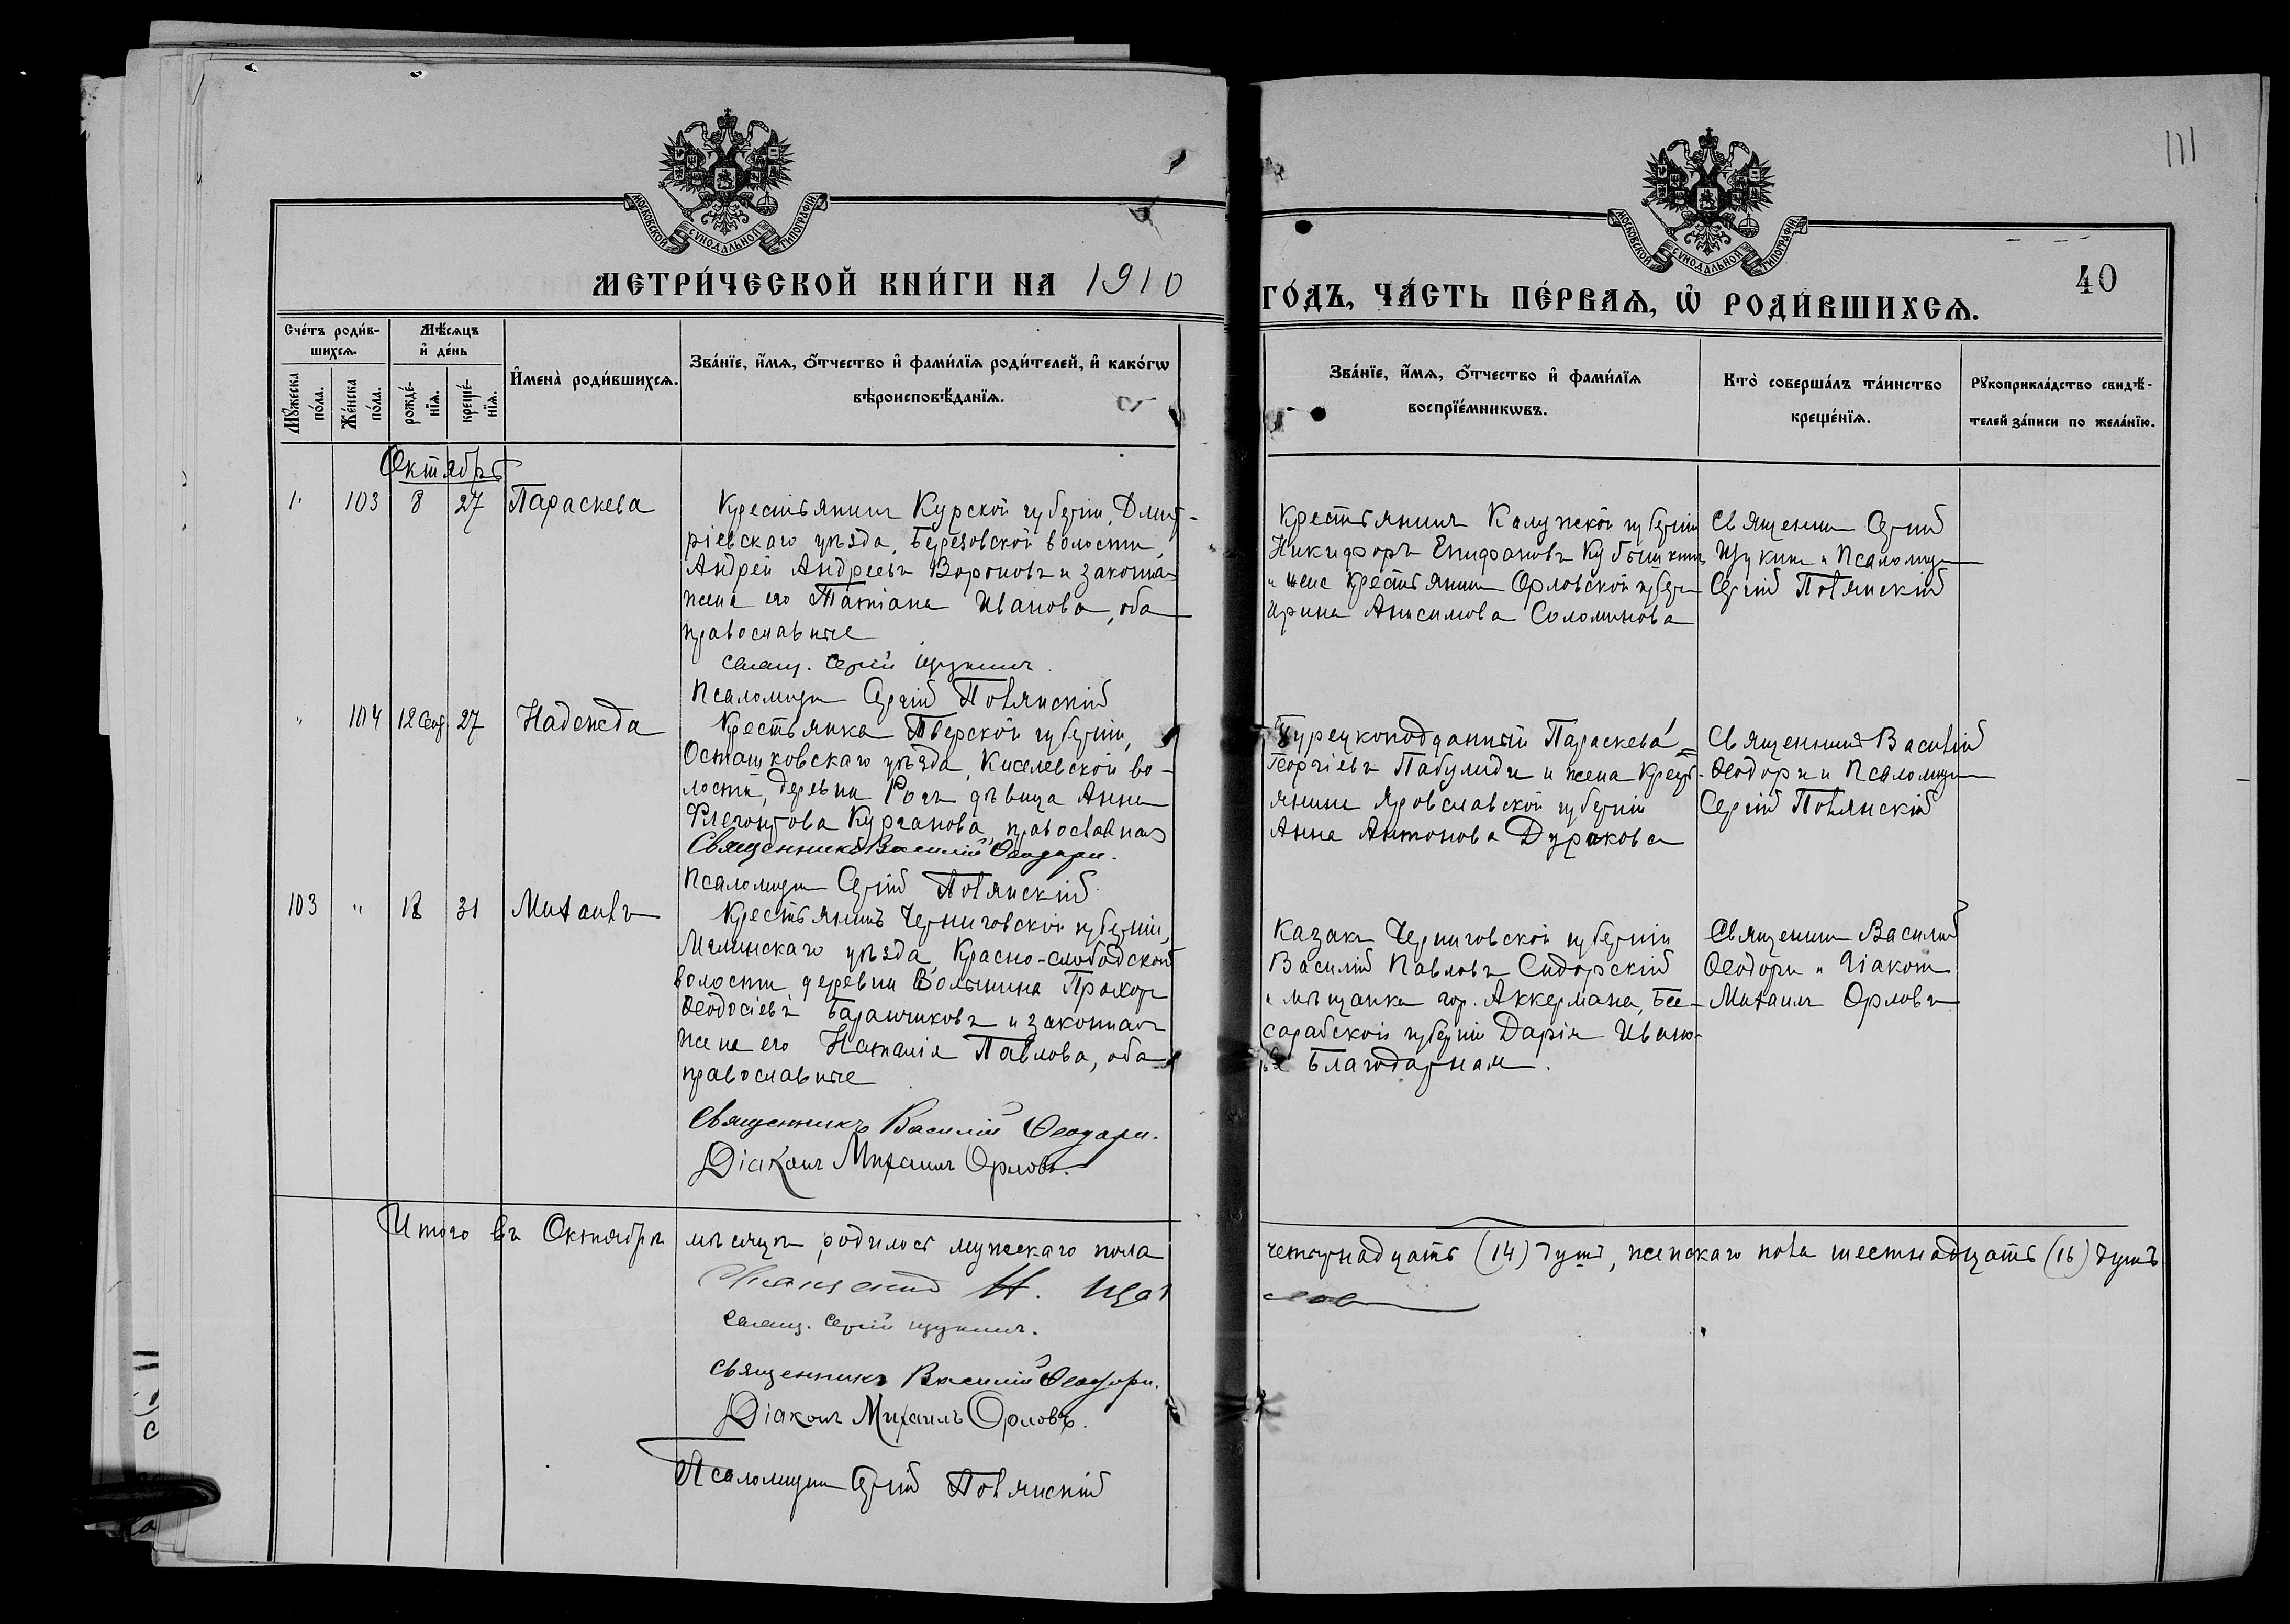 111
МОСКОВСКОЙ СѴНОДАЛЬНОЙ ТИПОГРАФІИ
МОСКОВСКОЙ СѴНОДАЛЬНОЙ ТИПОГРАФІИ
МЕТРИ́ЧЕСКОЙ КНИ́ГИ НА 1910
ГО́ДЪ, ЧА́СТЬ ПЕ́РВАѦ, Ѡ҆ РОДИ́ВШИХСѦ.
40
Сче́тъ роди́в-
шихсѧ.
Мꙋ́жеска
по́ла.
Же́нска
по́ла.
Мѣ́сѧцъ
и҆ де́нь
рожде́-
нїѧ.
креще́-
нїѧ.
И҆мена̀ роди́вшихсѧ.
Зва́нїе, и҆́мѧ, ѻ҆́тчество и҆ фами́лїѧ роди́телей, и҆ како́гѡ
вѣроисповѣ́данїѧ.
Зва́нїе, и҆́мѧ, ѻ҆́тчество и҆ фами́лїѧ
воспрїе́мникѡвъ.
Кто̀ соверша́лъ та́инство
креще́нїѧ.
Рꙋкоприкла́дство свидѣ́-
телей за́писи по жела́нїю.
Октябрь
103 8 27 Параскева
Крестьянинъ Курской губерніи, Дмит-
ріевскаго уѣзда, Березовской волости,
Андрей Андреевъ Вороновъ и законная
жена его Татіана Иванова, оба
православные
Свящ. Сергій Щукинъ.
Псаломщикъ Сергій Повянскій
Крестьянинъ Калужской губерніи
Никифоръ Епифановъ Кубышкинъ
и жена крестьянина Орловской губерніи
Ирина Анисимова Соломинова
Священникъ Сергій
Щукинъ и Псаломщикъ
Сергій Повянскій
" 104 12 Сент. 27 Надежда
Крестьянка Тверской губерніи,
Осташковскаго уѣзда, Киселевской во-
лости, деревни Рогъ дѣвица Анна
Флегонтова Курганова, православная
Священникъ Василій Ѳеодори.
Псаломщикъ Сергій Повянскій
Турецкоподданный Параскева
Георгіевъ Пабулиди и жена Кресть-
янина Ярославской губерніи
Анна Антонова Дуракова
Священникъ Василій
Ѳеодори и Псаломщикъ
Сергій Повянскій
103 " 18 31 Михаилъ
Крестьянинъ Черниговской губерніи,
Мглинскаго уѣзда, Красно-слободской
волости деревни Вольнина Прохоръ
Ѳеодосіевъ Баранчиковъ и законная
жена его Наталія Павлова, оба
православные
Священникъ Василій Ѳеодори.
Діаконъ Михаилъ Орловъ.
Казакъ Черниговской губерніи
Василій Павловъ Сидорскій
и мѣщанка гор. Аккермана, Бес-
сарабской губерніи Дарія Ивано-
ва Благодарная.
Священникъ Василій
Ѳеодори и Діаконъ
Михаилъ Орловъ
Итого въ Октябрѣ мѣсяцѣ родилось мужескаго пола
четырнадцать (14) душъ, женскаго пола шестнадцать (16) душъ
Свящ. Сергій Щукинъ.
Священникъ Василій Ѳеодори.
Діаконъ Михаилъ Орловъ.
Псаломщикъ Сергій Повянскій